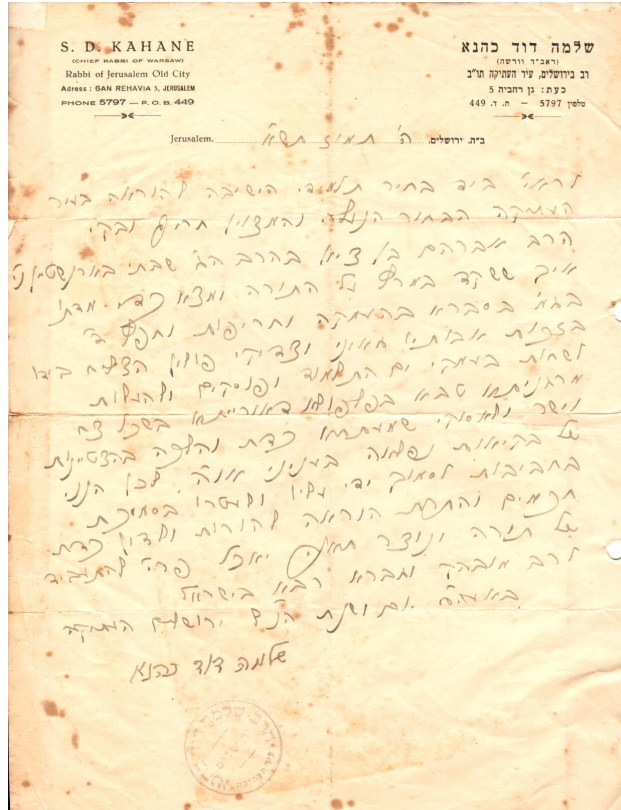 S. D. KAHANE
(CHIEF RABBI OF WARSAW)
Rabbi of Jerusalem Old City
Adress: GAN REHAVIA 5, JERUSALEM
PHONE 5797 — P.O.B. 449
שלמה דוד כהנא
(ראב״ד וורשה)
רב בירושלים, עיר העתיקה תו״ב
כעת: גן רחביה 5
טלפון 5797 — ת. ד. 449
Jerusalem, ה' תמוז תשא ב״ה. ירושלים.
בחיר תלמידי הישיבה להוראה בעיר
העתיקה הבחור הנעלה והמצוין חריף ובקי
הרב אברהם בן ציאן בהרב הג' שבתי
איך ששקד במרץ על התורה ומצא כדי מדתי
בסברא בהעמקה וחריפות
בזכות אבותיו גאוני וצדיקי פולין הצליח בידו
לשחות בעמקי ים התלמוד ופוסקים ולהעלות
מרגניתא טבא בפלפולא דאורייתא בשכל צח
וישר ולאסוקי שמעתתא כדת והלכה בהצטיינות
של בקיאות נפלאה בעניני או״ה. לכן הנני
בחביבות לסמוך ידי עליו ולעטרו בסמיכת
חכמים והתרת הוראה להורות ולדון כדת
של תורה ונוצר תאנה יאכל פריה
לרב מובהק וגברא רבא בישראל
ירושלים העתיקה
שלמה דוד כהנא
הרב שלמה דוד